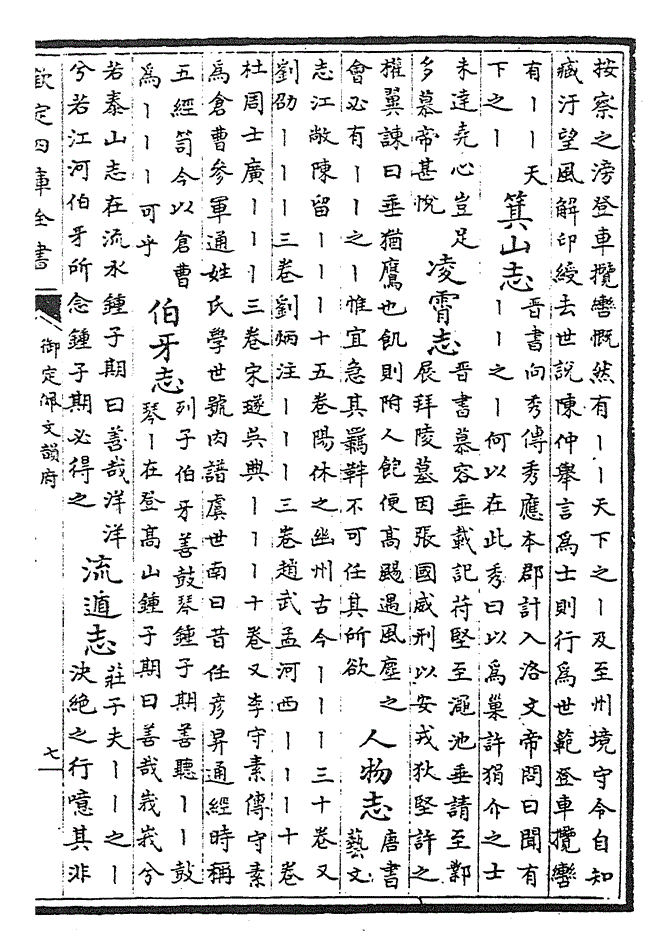 按察之滂登車攬轡慨然有丨丨天下之丨及至州境守令自知
臧汙望風解印綬去世說陳仲舉言為士則行為世範登車攬轡
有丨丨天
下之丨
箕山志
晉書向秀傳秀應本郡計入洛文帝問曰聞有
丨丨之丨何以在此秀曰以為巢許狷介之士
未達堯心豈足
多慕帝甚悅
凌霄志
晉書慕容垂載記苻堅至澠池垂請至鄴
展拜陵墓因張國威刑以安戎狄堅許之
權翼諫曰垂猶鷹也飢則附人飽便高颺遇風塵之
會必有丨丨之丨惟宜急其羈靽不可任其所欲
人物志
唐書
藝文
志江敞陳留丨丨丨十五卷陽休之幽州古今丨丨丨三十卷又
劉卲丨丨丨三卷劉炳注丨丨丨三卷趙武孟河西丨丨丨十卷
杜周士廣丨丨丨三卷宋璲吳興丨丨丨十卷又李守素傳守素
為倉曹參軍通姓氏學世號肉譜虞世南曰昔任彥昇通經時稱
五經笥今以倉曹
為丨丨丨可乎
伯牙志
列子伯牙善鼓琴鍾子期善聽丨丨鼓
琴丨在登高山鍾子期曰善哉峩峩兮
若泰山志在流水鍾子期曰善哉洋洋
兮若江河伯牙所念鍾子期必得之
流遁志
莊子夫丨丨之丨
決絕之行噫其非
欽定四庫全書
御定佩文韻府
七